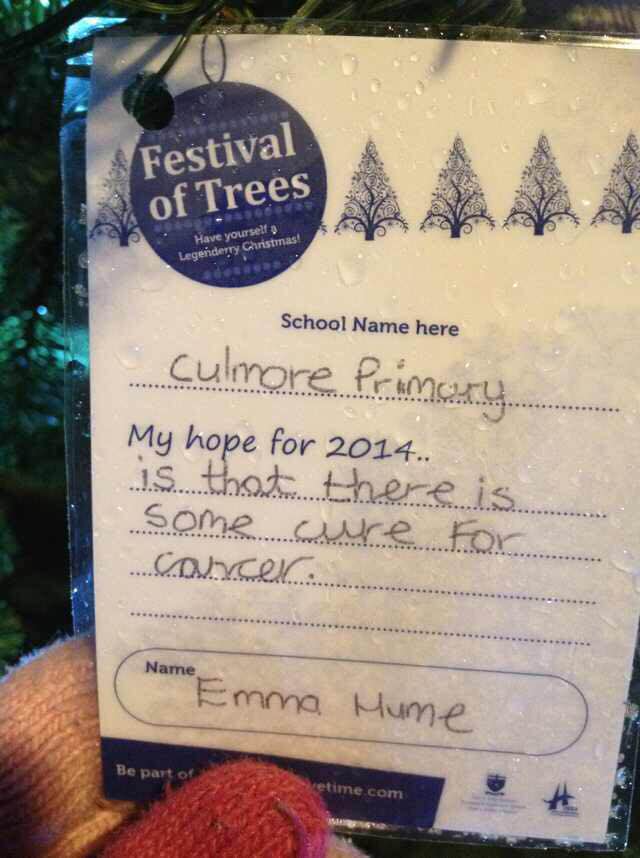 Festival
of Trees
Have yourself a
Legenderry Christmas!
School Name here
Culmore Primary
My hope for 2014..
is that there is
some cure for
cancer.
Name
Emma Hume
Be part of
vetime.com